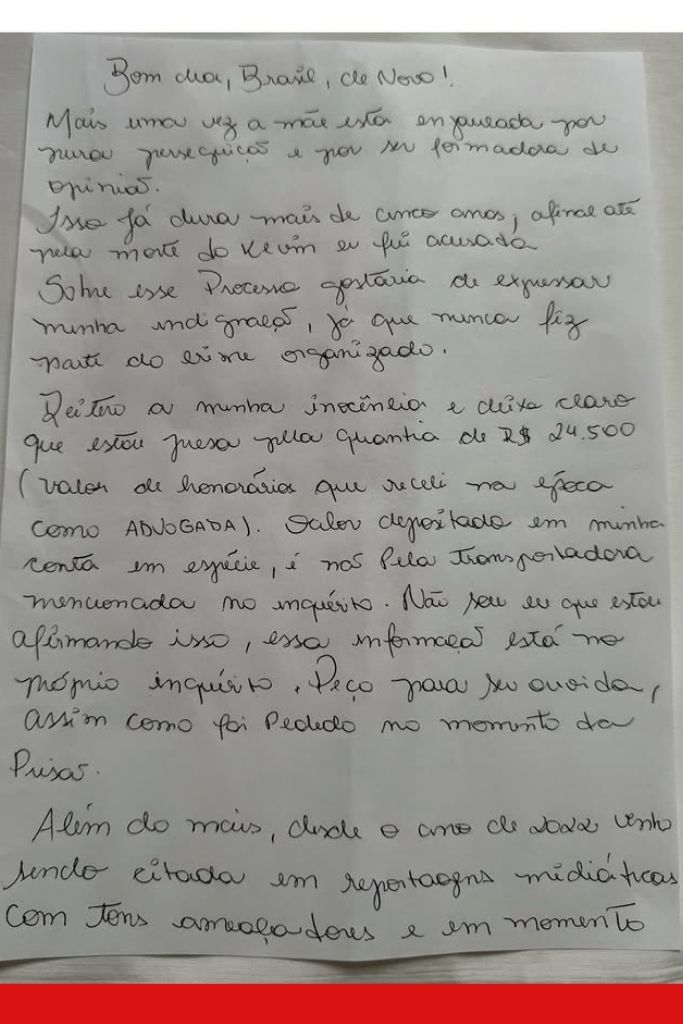 Bom dia, Brasil, de Novo!
Mais uma vez a mãe está enjaulada por
pura perseguição e por ser formadora de
opinião.
Isso já dura mais de cinco anos, afinal até
pela morte do Kevin eu fui acusada
Sobre esse Processo gostaria de expressar
minha indignação, já que nunca fiz
parte do crime organizado.
Reitero a minha inocência e deixo claro
que estou presa pela quantia de R$ 24.500
(valor de honorários que recebi na época
como ADVOGADA). Valor depositado em minha
conta em espécie, é não Pela transportadora
mencionada no inquérito. Não sou eu que estou
afirmando isso, essa informação está no
próprio inquérito. Peço para ser ouvida,
assim como foi Pedido no momento da
Prisão.
Além do mais, desde o ano de 2022 venho
sendo citada em reportagens midiáticas
com tons ameaçadores e em momento